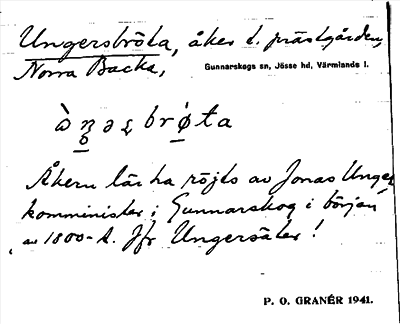 Ungerströta, åker t. prästgården,
Norra Backa, Gunnarskogs sn, Jösse hd, Värmlands l.
Åkern lär ha röjts av Jonas Unger
komminister i Gunnarskog i början
av 1800-t. Jfr Ungersäter!
P. O. GRANÉR 1941.